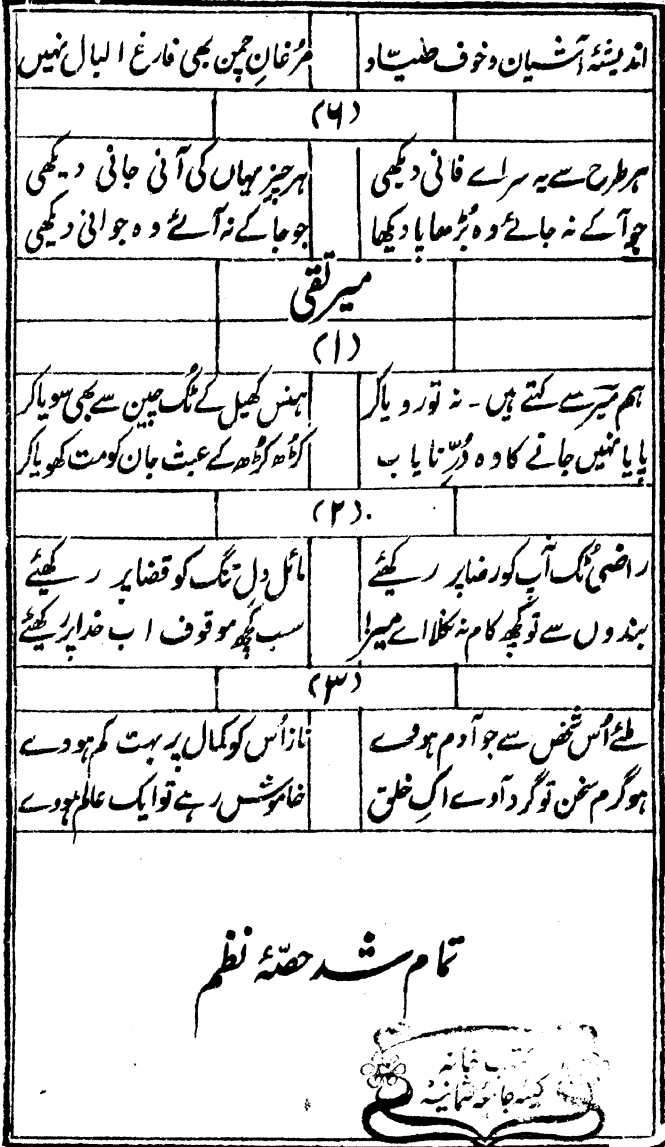 اندیشۂ آشیان و خوف صیّاد مرُغانِ چمن بھی فارغ البال نہیں
(۶)
ہر طرح سے یہ سراے فانی دیکھی ہر چیز یہاں کی آنی جانی دیکھی
جو آکے نہ جائے وہ بُڑھاپا دیکھا جو جاکے نہ آئے وہ جوانی دیکھی
میر تقی
(۱)
ہم میرؔ سے کہتے ہیں - نہ تو رویا کر ہنس کھیل کے ٹُک چین سے بھی سویا کر
پایا نہیں جانے کا وہ دُرِّ نایاب کڑھ کڑھ کے عبث جان کو مت کھویا کر
(۲)
راضی ٹُک آپ کو رضا پر رکھئے مائل دلِ تنگ کو قضا پر رکھئے
بندوں سے تو کچھ کام نہ نکلا اے میرؔ! سب کچھ موقوف اب خدا پر رکھئے
(۳)
ملئے اُس شخص سے جو آدم ہووے ناز اُس کو کمال پر بہت کم ہووے
ہو گرم سخن تو گرد آوے اک خلق خاموش رہے تو ایک عالم ہووے
تمام شد حصّۂ نظم
کتب خانہ
کلیہ جامعہ عثمانیہ